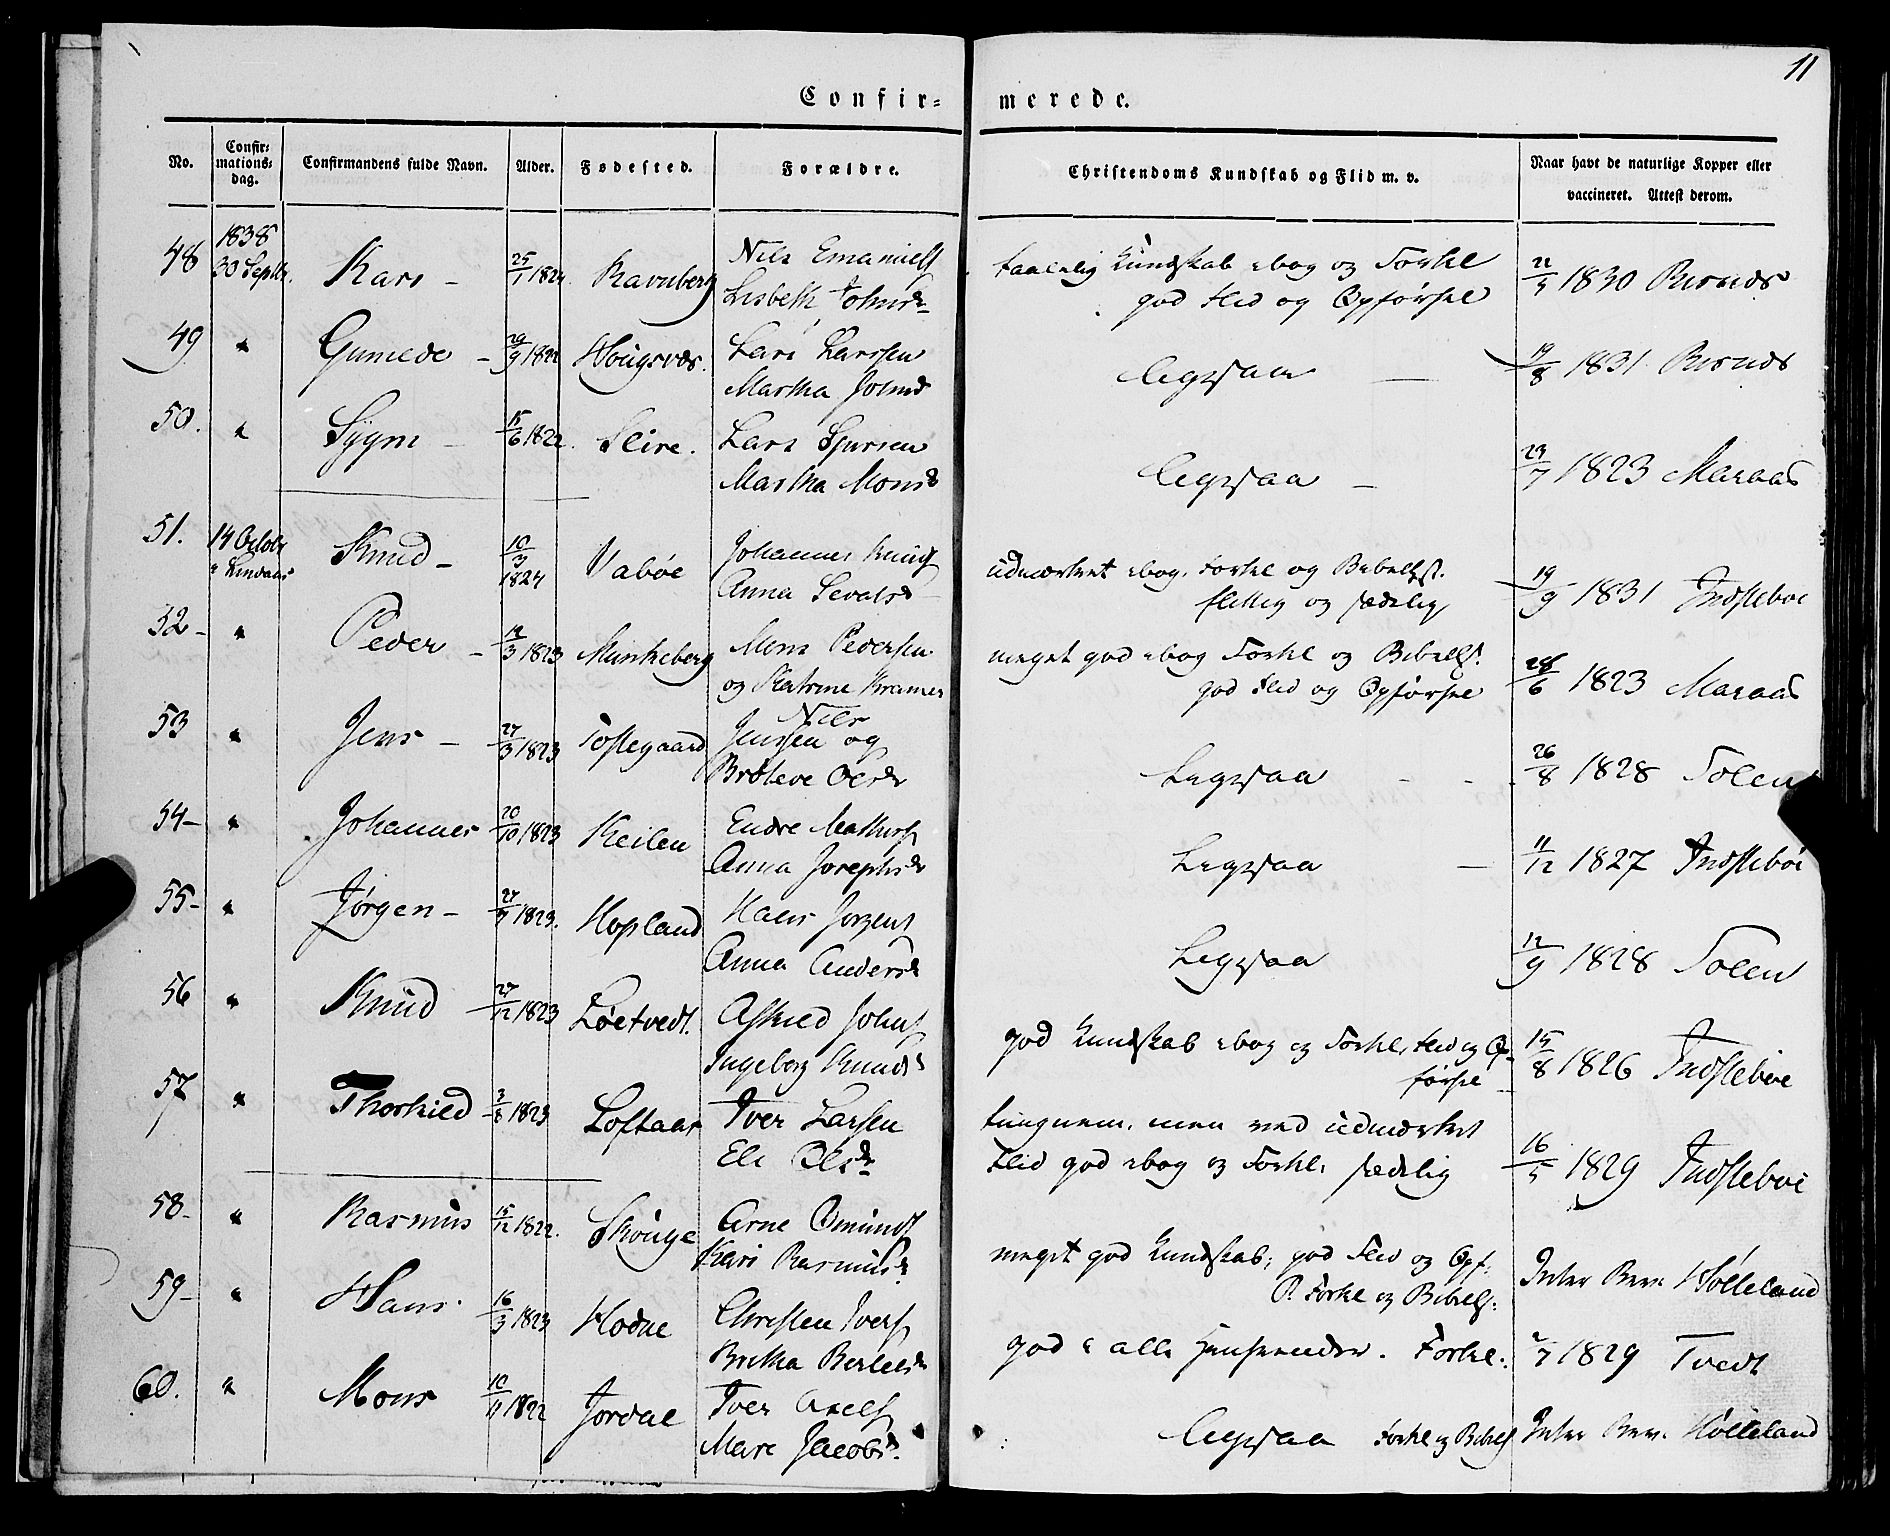 11
Confir- merede.
No. Confirmations-dag. Confirmandens fulde Navn. Alder. Fødested. Forældre. Christendoms Kundskab og Flid m. v. Naar havt de naturlige Kopper eller vaccineret. Attest derom.
1838
48 30 Septbr. Kari - 25/1 1824 Ravnberg Nils Emanuels
Lisbeth Johnsdr
taalelig Kundskab i bog og Forkl
god Flid og Opførsel
1830
49 " Gunilde - 29/9 1822 Hougsvær. Lars Larssen
Martha Johnsd
ligesaa
19/8 1831
50. " Sygni - 15/6 1822. Seire. Lars Sjursen
Martha Monsd
ligesaa -
23/7 1823 Maraas
51. 14 Octobr
i Lindaas Knud - 10/3 1824 Vabøe Johannes Knuds
Anna Sevalsd
udmærket i bog. Forkl og Bibelhist.
flittig og sædelig
19/9 1831 Indstebøe
52 - " Peder - 12/3 1823 Munkeberg Mons Pedersen
og Katrine Kramer
meget god i bog Forkl og Bibelh.
god Flid og Opførsel
28/6 1823 Maraas
53 " Jens - 27/3 1823 Toftegaard Nils
Jenssen og
Brøleve Olsdr
Ligesaa - -
26/8 1828 Solen
54 - " Johannes 20/10 1823 Keilen Endre Mathias
Anna Josephsdr
Ligesaa -
11/12 1827 Indstebøe
55 - " Jørgen - 27/9 1823. Hopland Hans Jørgens
Anna Andersdr
Ligesaa
12/9 1828 Solen
56 " Knud - 27/12 1823 Løetvedt. Askild Johns
Ingeborg Knudsdr
god Kundskab i bog og Forkl, Flid og Op-
førsel
15/8 1826 Indstebøe
57 " Thorkild - 3/8 1823 Loftaas Iver Larsen
Eli Olsdr
tungnem, men ved udmærket
Flid god i bog og Forkl. sædelig
16/5 1829 Indstebøe
58 - " Rasmus 15/12 1822. Skouge Arne Omunds
Kari Rasmusdr
meget god Kundskab; god Flid og Opf.
P. Forkl og Bibelh:
Inter Bev. Hølleland
59 - " Hans 16/3 1823 Hodne Christen Ivers
Britha Berlilsdr
god i alle Henseender. Forkl.
2/7 1829 Tvedt
60. " Mons 10/11 1822 Jordal Iver Axels
Mari Jacobsdr.
ligesaa Forkl og Bibelh
Inter Bev. Hølleland